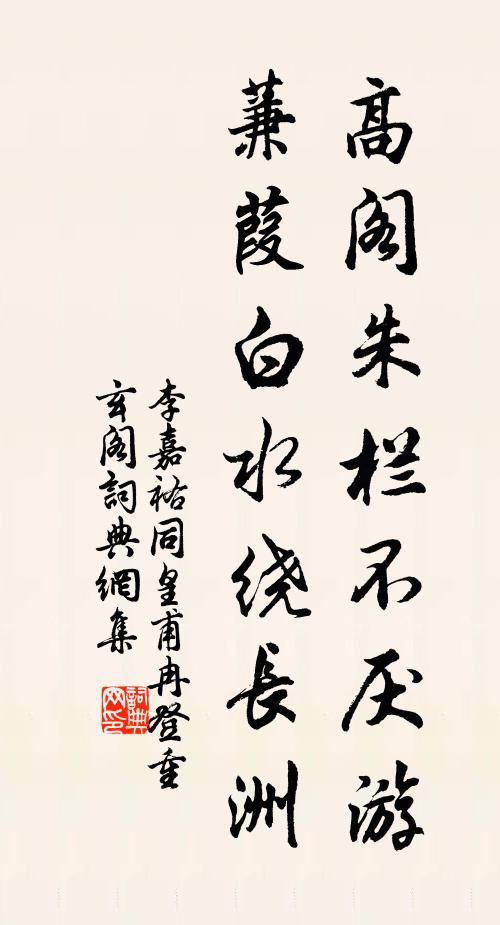 高阁朱栏不厌游
蒹葭白水绕長洲
李嘉祐同皇甫冉登重
玄阁詞典網集
詞典网印